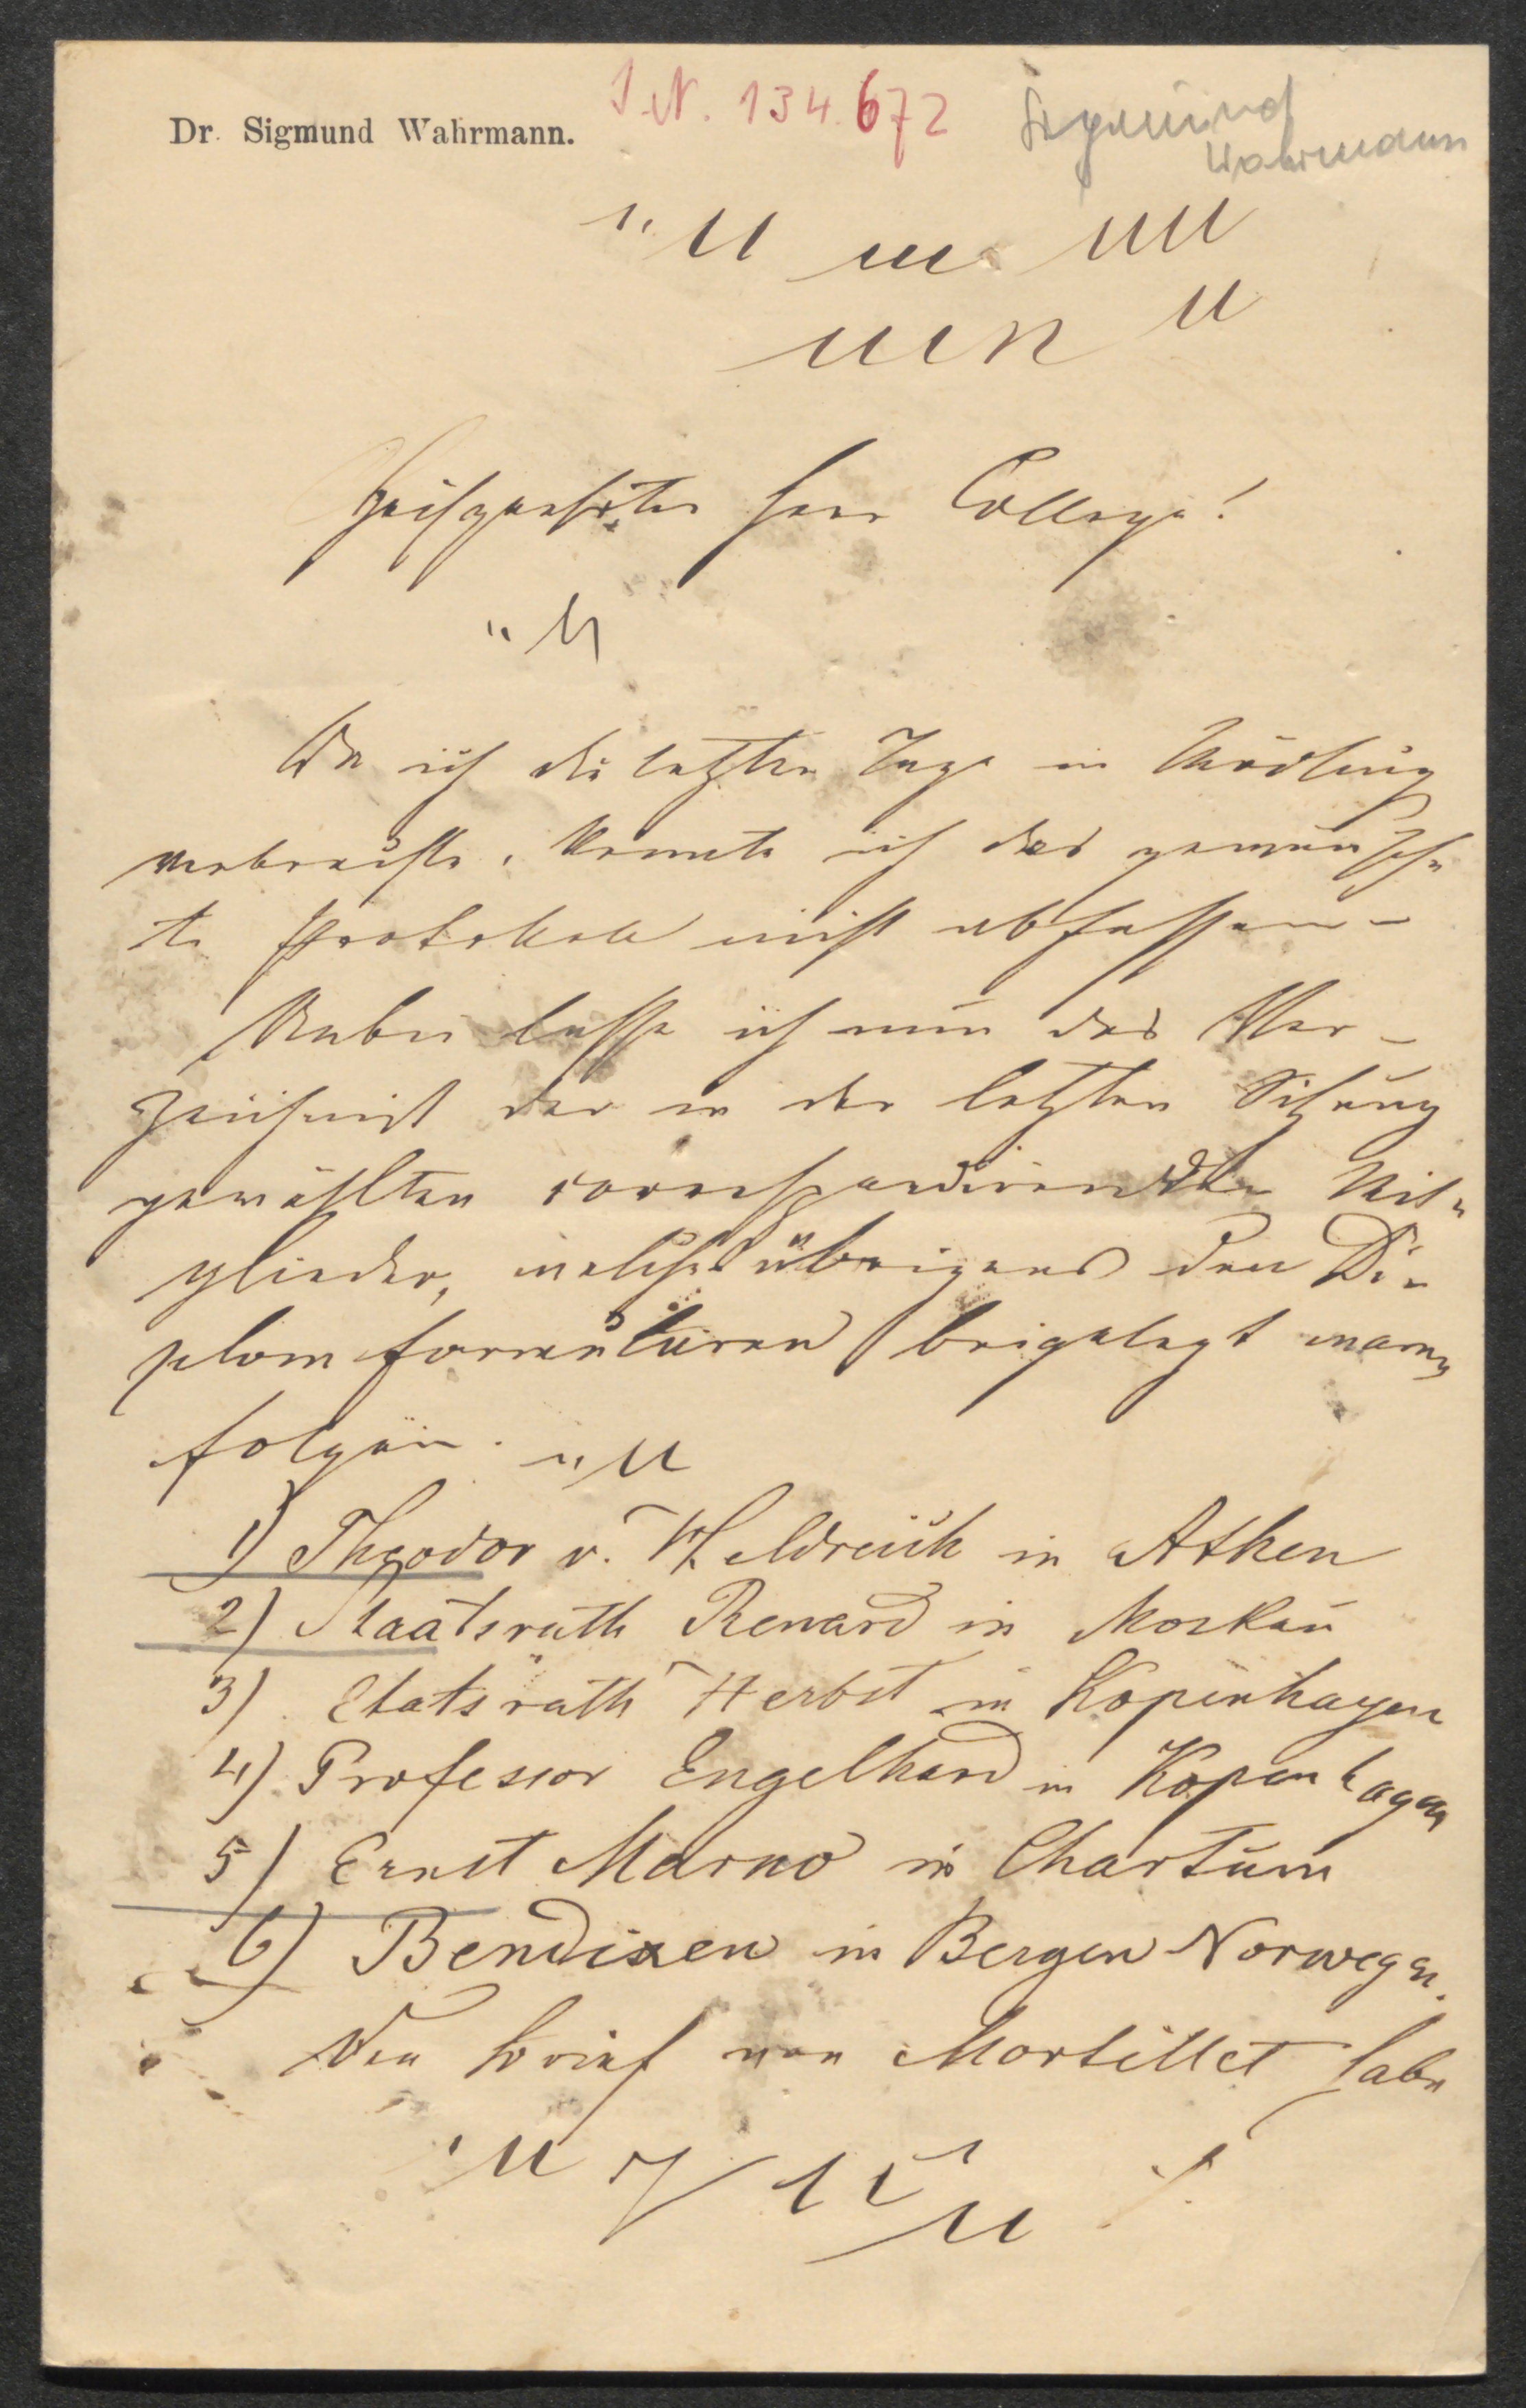 Dr. Sigmund Wahrmann.
I.N. 134.672
Sigmund
Wahrmann
Hochgeehrter Herr College!
Da ich die letzten Tage in Mödling
verbrachte, konnte ich das gewünsch-
te Protokoll nicht abfassen –
Anbei lasse ich nun das Ver-
zeichnist der in der letzten Sitzung
gewählten correspondirenden Mit-
glieder, welche übrigens den Di-
plomformularen beigelegt waren
folgen.
1) Theodor v. Heldreich in Athen
2) Staatsrath Renard in Moskau
3) Etatsrath Herbst in Kopenhagen
4) Professor Engelhard in Kopenhagen
5) Ernst Marno in Chartum
6) Bendixen in Bergen Norwegen.
Den Brief von Mortillet habe